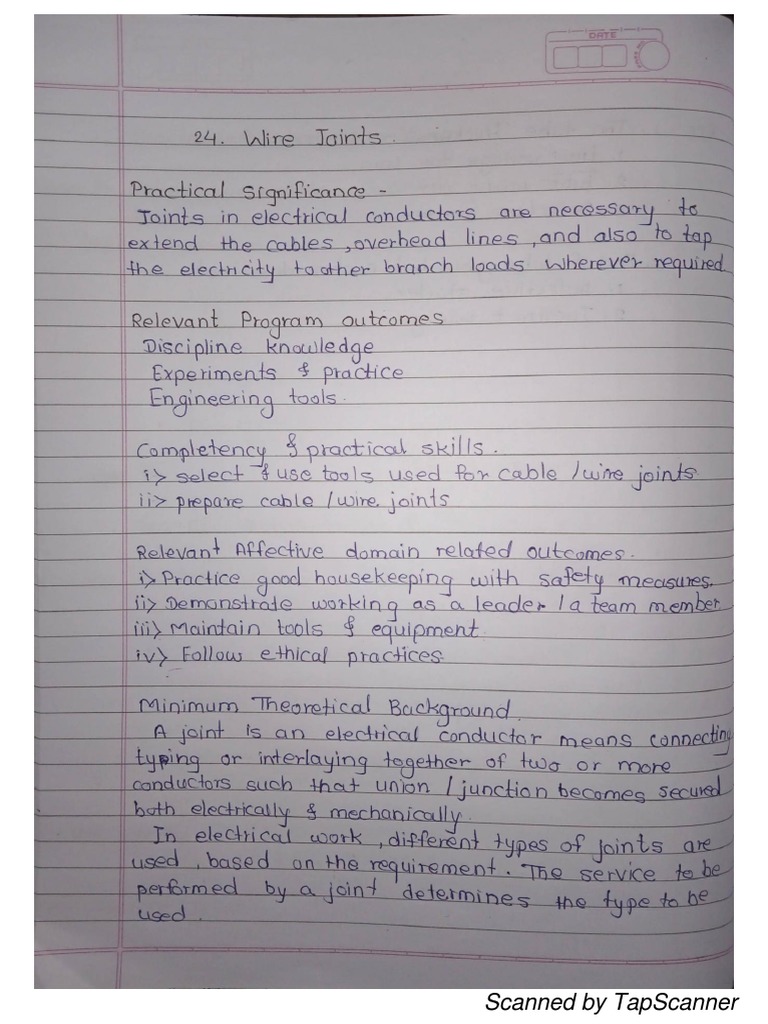 DATE
24. Wire Joints.
Practical Significance -
Joints in electrical conductors are necessary to
extend the cables, overhead lines, and also to tap
the electricity to other branch loads wherever required
Relevant Program outcomes
Discipline knowledge
Experiments & practice
Engineering tools.
Completency & practical skills.
i> select & use tools used for cable / wire joints
ii> prepare cable / wire joints
Relevant Affective domain related outcomes.
i> Practice good housekeeping with safety measures.
ii> Demonstrate working as a leader / a team member
iii> Maintain tools & equipment
iv> Follow ethical practices
Minimum Theoretical Background.
A joint is an electrical conductor means connecting
typing or interlaying together of two or more
conductors such that union / junction becomes secured
both electrically & mechanically.
In electrical work, different types of joints are
used, based on the requirement. The service to be
performed by a joint determines the type to be
used.
Scanned by TapScanner